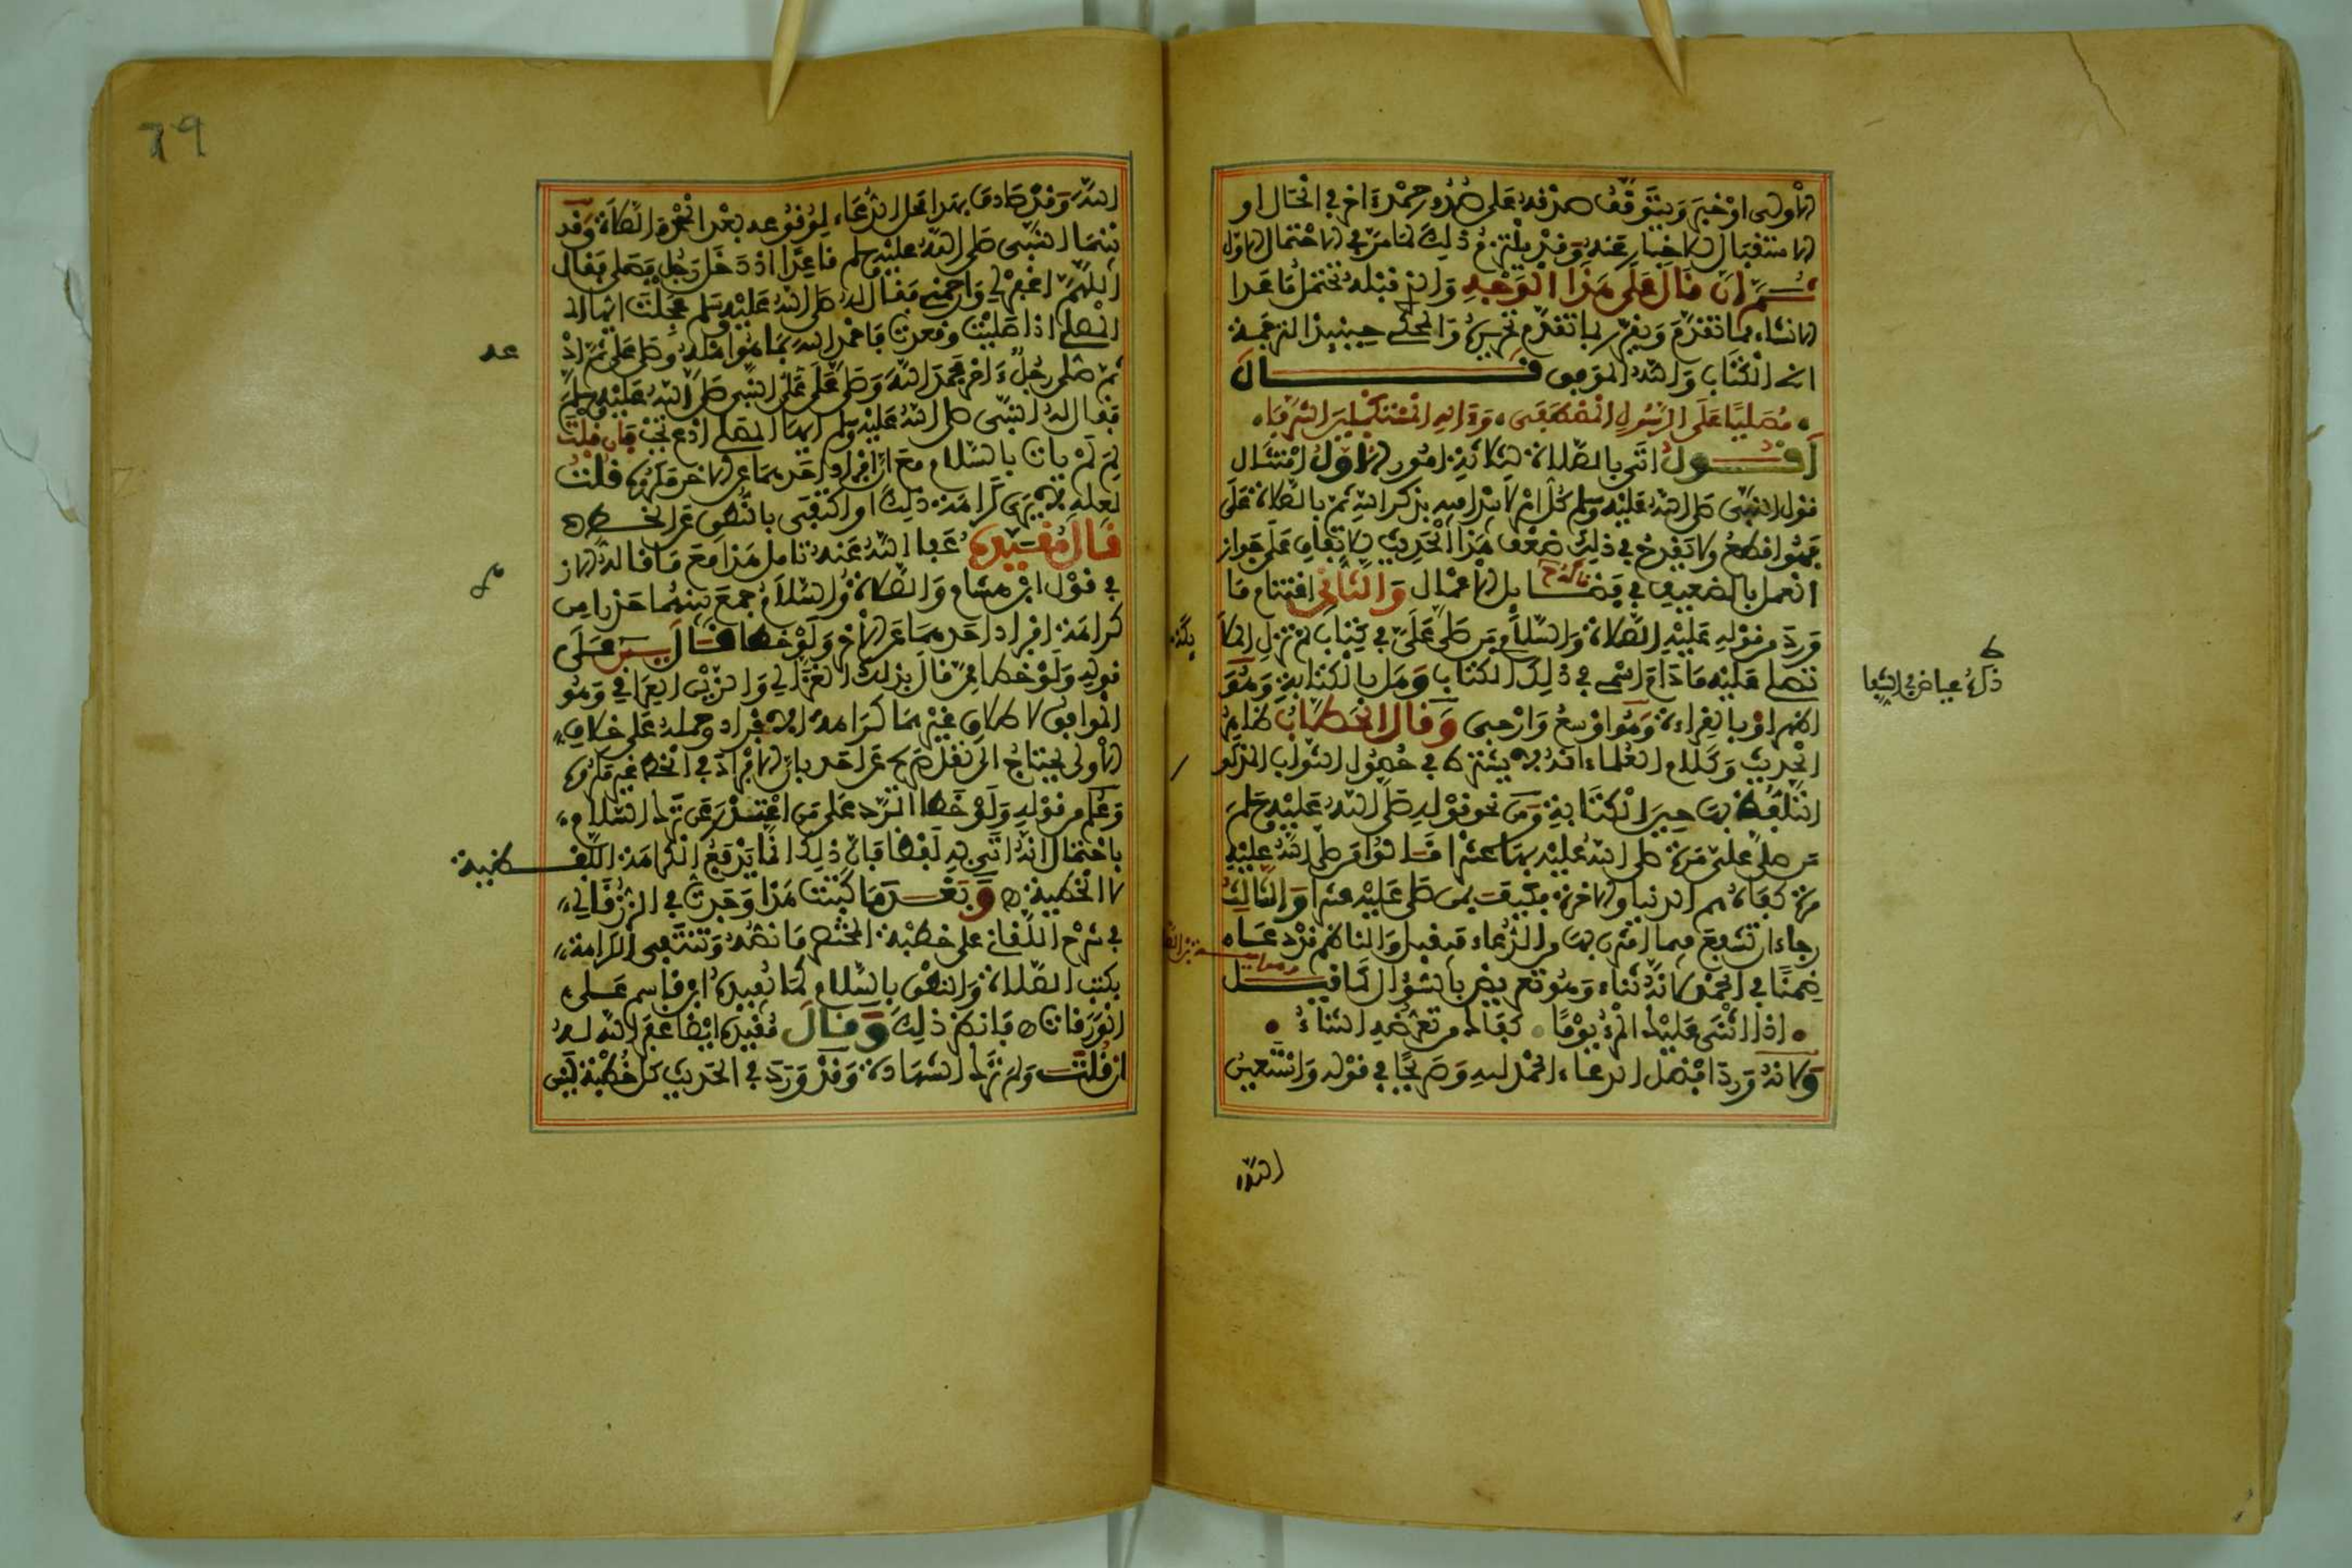 الأولى أو خبر ويتوقف صدقه على صدور حمد آخر في الحال أو
الاستقبال لا خبار عنه وقد يلتزم ذلك لما مر في الاحتمال الأول
ثم إن قال على هذا الوجه والذي قبله يحتمل ما عدا
الإنشاء مما تقدم ويقرر بما تقدم تحريره والمحكي حينئذ الترجمة
الى الكتاب والله الموفق قال
مصليا على الرسول المصطفى • وءاله المستكملين الشرفا •
أقول أتى بالصلاة لثلاثة أمور الأول امتثال
قول النبي صلى الله عليه وسلم كل أمر لا يبدأ فيه بذكر الله ثم بالصلاة علي
فهو أقطع ولا يقدح في ذلك ضعف هذا الحديث لاتفاق على جواز
العمل بالضعيف في فضائل الأعمال والثاني اغتنام ما
ورد من قوله عليه الصلاة والسلام من صلى علي في كتاب لم تزل الملا
تصلي عليه ما دام اسمي في ذلك الكتاب وهل بالكتابة وهو
اظهر أو بالقراءة وهو أوسع وارجى وقال الحطاب ظاهر
الحديث وكلام العلماء أنه لا يشترط في حصول الثواب المذكور
التلفظ بها حين الكتابة ومن نحو قوله صلى الله عليه وسلم
من صلى علي مرة صلى الله عليه بها عشرا قالوا من صلى الله عليه
مرة كفاه هم الدنيا والآخرة فكيف بمن صلى عليه عشرا والثالث
رجاء أن تشفع فيما اقترن بها من الدعاء فيقبل والناظم قد دعاه
ضمنا في الحمد لأنه ثناء وهو تعريض بالسؤال كما قيل
• إذا أثنى عليك المرء يوما • كفاه من تعرضه الثناء •
ولأنه ورد أفضل الدعاء الحمد لله وصريحا في قوله وأستعين
الله
ط
ذكره عياض في الشفا
79
الله وقد صادف بهذا محل الدعاء لوقوعه بعد الحمد والصلاة وقد
بينما النبي صلى الله عليه وسلم قاعدا إذ دخل رجل فصلى فقال
اللهم اغفر لي وارحمني فقال له صلى الله عليه وسلم عجلت أيها
المصلي إذا صليت وقعدت فاحمد الله بما هو أهله وصل علي ثم ادعه
ثم صلى رجل ءاخر فحمد الله وصلى على النبي صلى الله عليه وسلم
فقال له النبي صلى الله عليه وسلم أيها المصلي ادع تجب فإن قلت
لم لم يأت بالسلام مع أن إفراد أحدهما عن الآخر مكروه قلت
لعله لا يرى كراهة ذلك أو اكتفى بالنطق عن الخط
قال مقيده عفا الله عنه تأمل هذا مع ما قاله
في قول ابن هشام والصلاة والسلام جمع بينهما حذرا من
كراهة إفراد أحدهما عن الآخر ولو خطا قال يس على
قوله ولو خطا قال بذلك الغزالي والزين العراقي وهو
الموافق لإطلاق غيرهما كراهة الإفراد وحمله على خلاف
الأولى يحتاج إلى نقل صريح عن أحد بأن الإفراد في الخط غير مكروه
وعلم من قوله ولو خطا الرد على من اعتذر عن ترك السلام
باحتمال أنه أتى به لفظا فإن ذلك إنما يرفع الكراهة اللفظية
لا الخطية وبعد ما كتبت هذا وجدت في الزرقاني
في شرح اللقاني على خطبة المختصر ما نصه وتنتفي الكراهة
بكتب الصلاة والنطق بالسلام كما يفيده ابن قاسم على
الورقات فانظر ذلك وقال مقيده أيضا عفر الله له
إن قلت ولم ترك الشهادة وقد ورد في الحديث كل خطبة ليس